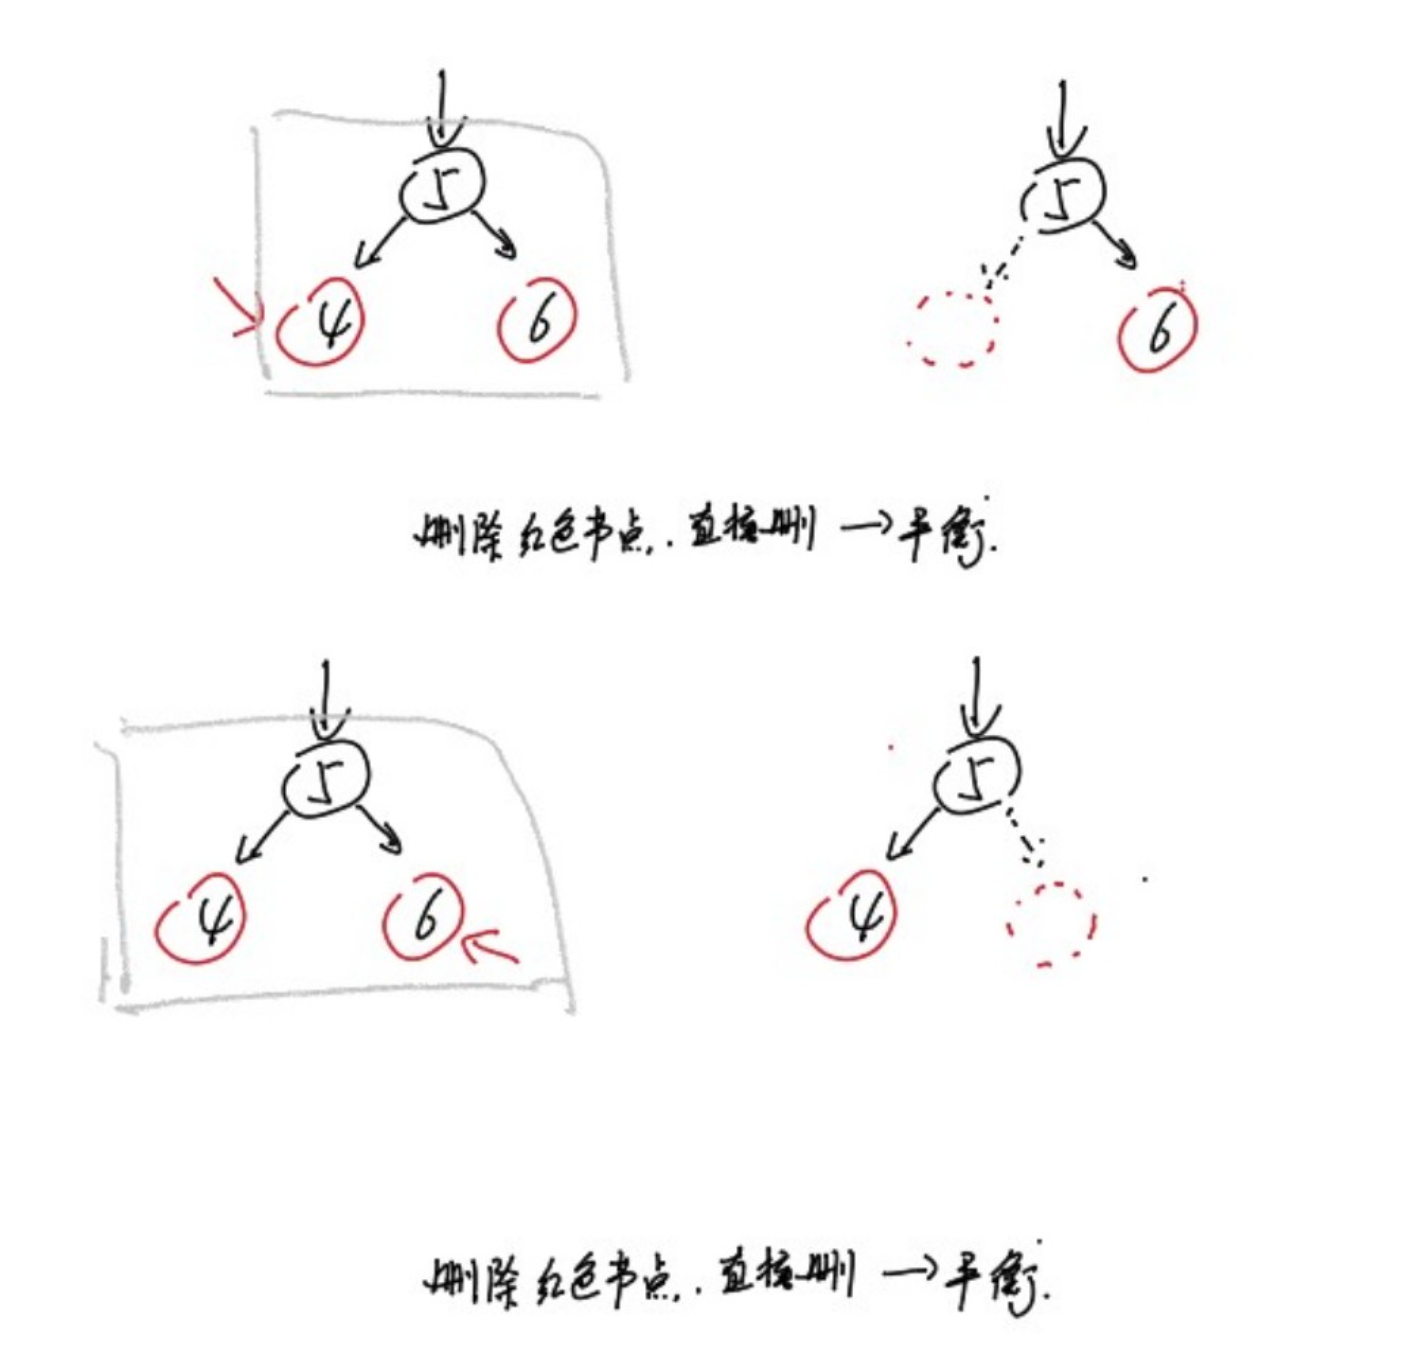 5
5
4
6
6
删除红色节点,. 直接删 → 平衡.
5
5
4
6
4
删除红色节点,. 直接删 → 平衡.